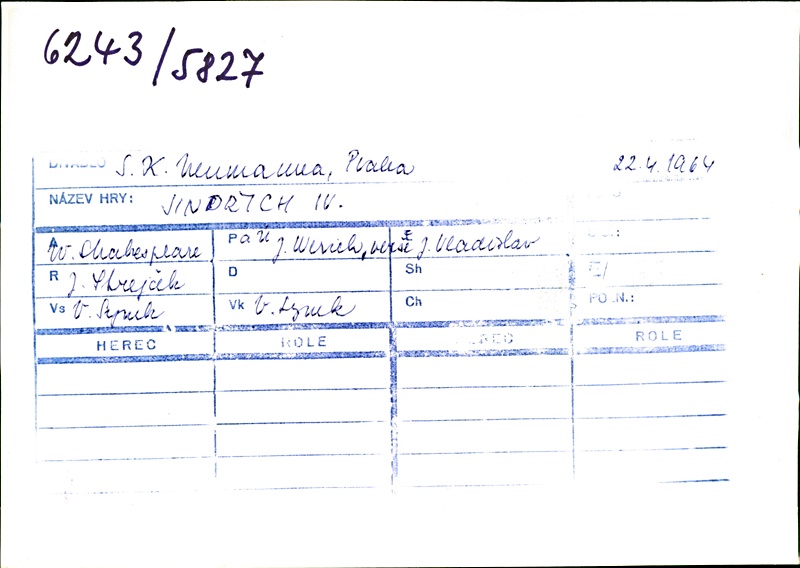 6243/5827
DIVADLO S. K. Neumanna, Praha 22.4.1964
NÁZEV HRY: JINDŘICH IV.
A W. Shakespeare P a Ú J. Werich, verše J. Vladislav
R J. Strejček D Sh
Vs V. Synek Vk V. Synek Ch PO .N.:
HEREC ROLE HEREC ROLE